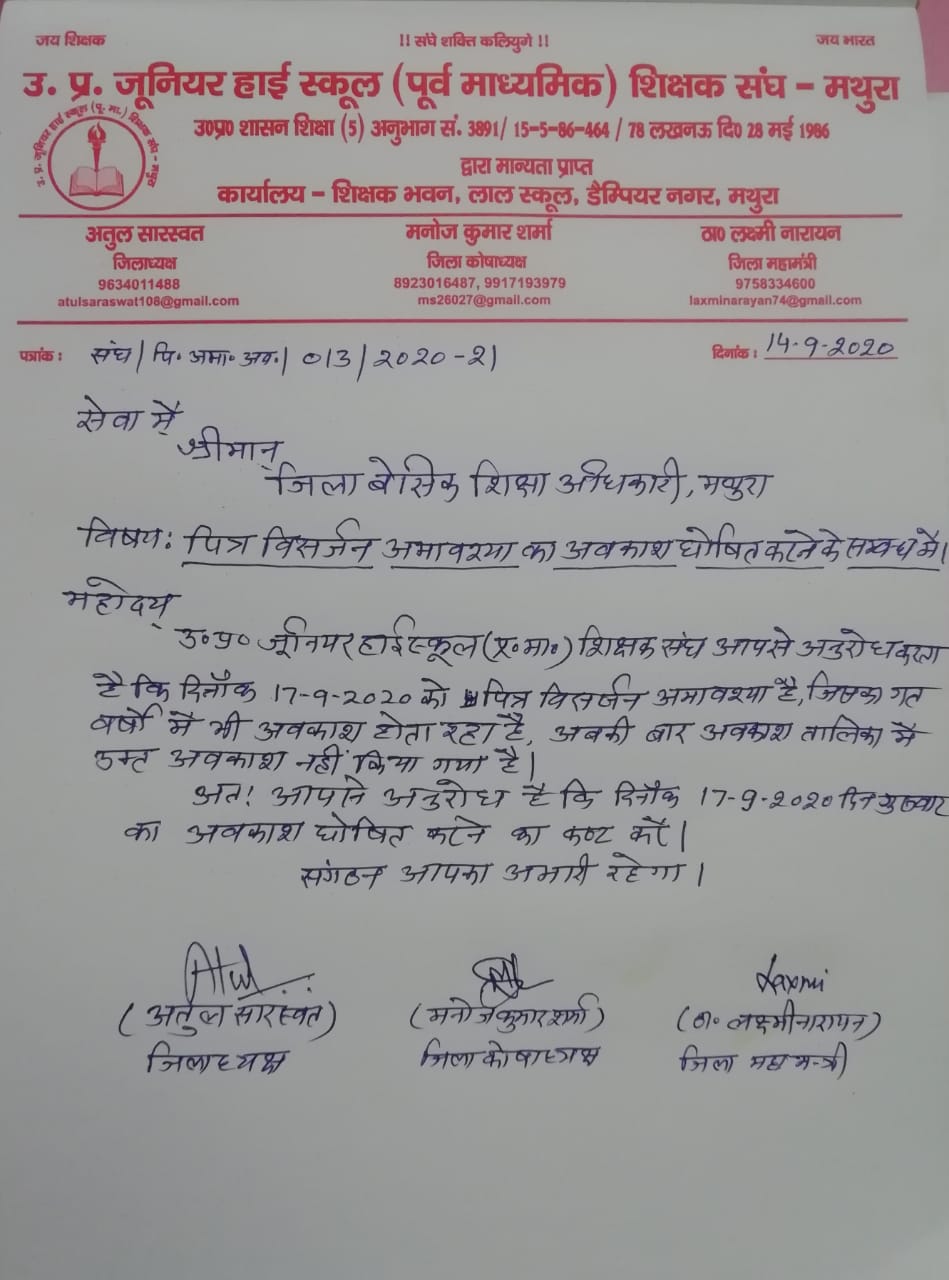 जय शिक्षक
!! संघे शक्ति कलियुगे !!
जय भारत
उ. प्र. जूनियर हाई स्कूल (पूर्व माध्यमिक) शिक्षक संघ – मथुरा
उ. प्र. जूनियर हाई स्कूल (पू. मा.) शिक्षक संघ - मथुरा
उ0प्र0 शासन शिक्षा (5) अनुभाग सं. 3891/ 15-5-86-464 / 78 लखनऊ दि0 28 मई 1986
द्वारा मान्यता प्राप्त
कार्यालय – शिक्षक भवन, लाल स्कूल, डैम्पियर नगर, मथुरा
अतुल सारस्वत
जिलाध्यक्ष
9634011488
atulsaraswat108@gmail.com
मनोज कुमार शर्मा
जिला कोषाध्यक्ष
8923016487, 9917193979
ms26027@gmail.com
ठा0 लक्ष्मी नारायन
जिला महामंत्री
9758334600
laxminarayan74@gmail.com
पत्रांक : संघ/पि॰ अमा॰ अव॰/013/2020-21
दिनांक : 14-9-2020
सेवा में,
श्रीमान्
जिला बेसिक शिक्षा अधिकारी, मथुरा
विषय: पित्र विसर्जन अमावश्या का अवकाश घोषित करने के सम्बन्ध में।
महोदय,
उ॰प्र॰ जूनियर हाईस्कूल (पू॰मा॰) शिक्षक संघ आपसे अनुरोध करता
है कि दिनाँक 17-9-2020 को पित्र विसर्जन अमावश्या है, जिसका गत
वर्षो में भी अवकाश होता रहा है, अबकी बार अवकाश तालिका में
उक्त अवकाश नहीं किया गया है।
अतः आपसे अनुरोध है कि दिनाँक 17-9-2020 दिन गुरुवार
का अवकाश घोषित करने का कष्ट करें।
संगठन आपका अभारी रहेगा।
Atul
(अतुल सारस्वत)
जिलाध्यक्ष
(मनोज कुमार शर्मा)
जिला कोषाध्यक्ष
Laxmi
(ठा॰ लक्ष्मीनारायन)
जिला महामन्त्री